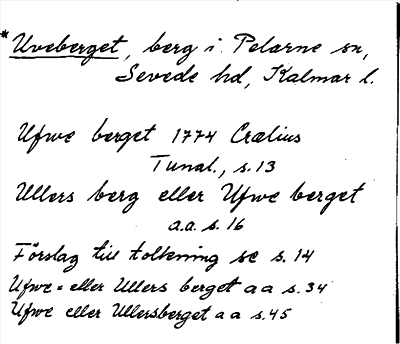 *Uveberget, berg i Pelarne sn,
Sevede hd, Kalmar l.
Ufwe berget 1774 Crælius
Tunal., s. 13
Ullers berg eller Ufwe berget
a.a. s. 16
Förslag till tolkning se s. 14
Ufwe= eller Ullers berget a a s. 34
Ufwe eller Ullersberget a a s. 45